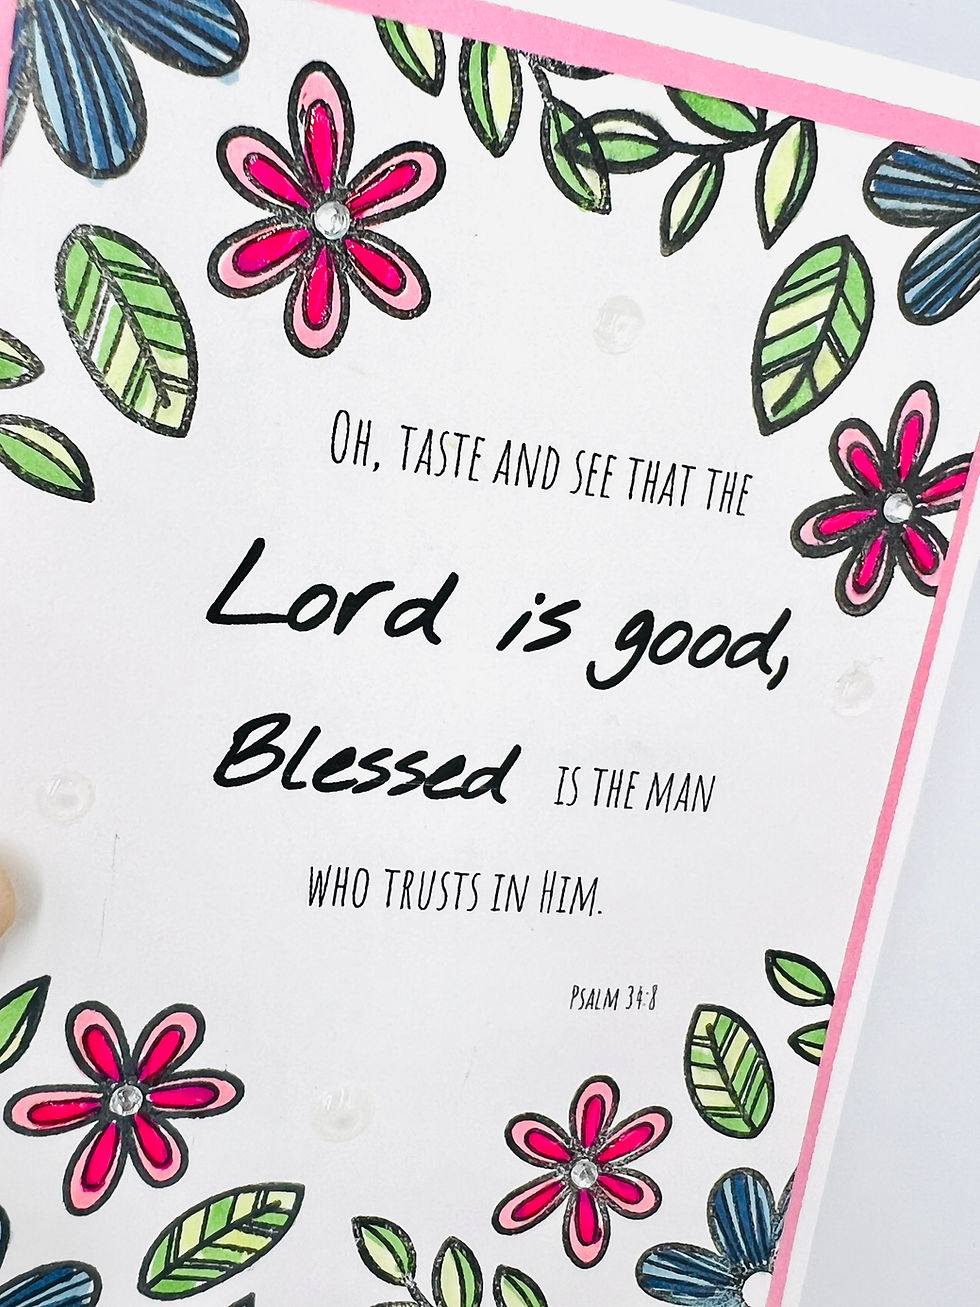 Oh, taste and see that the
Lord is good,
Blessed is the man
who trusts in Him.
Psalm 34:8